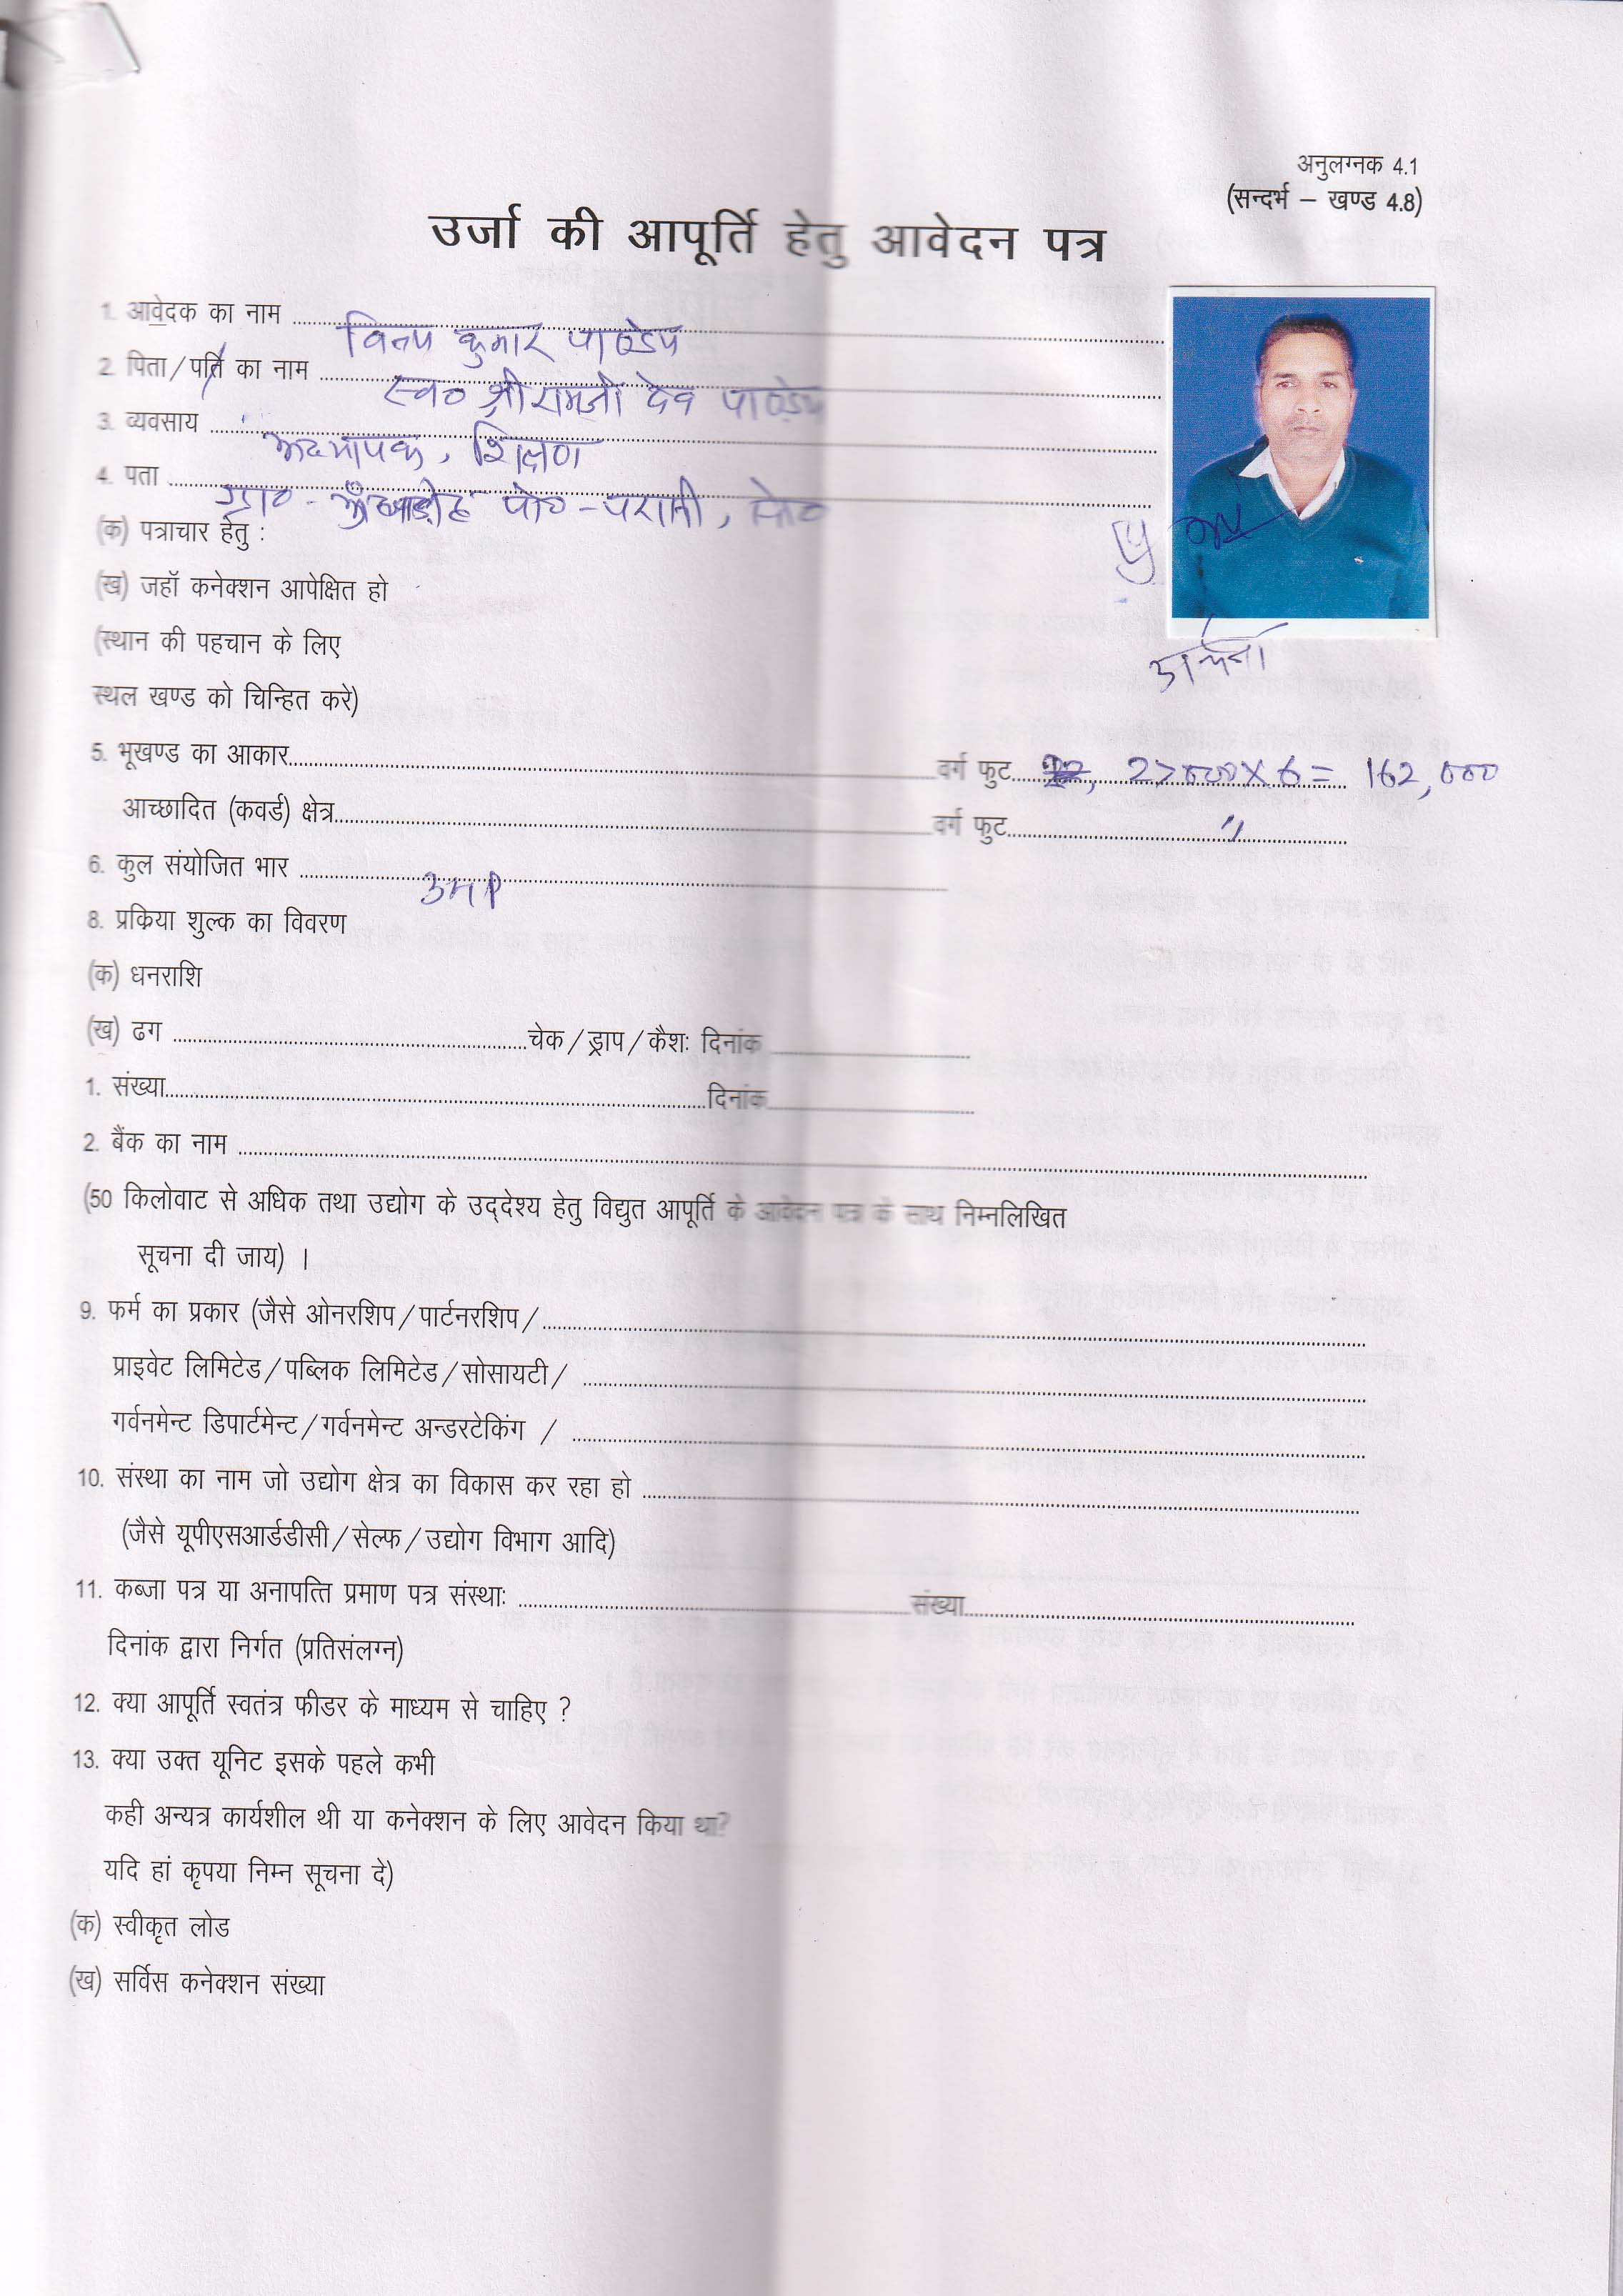 अनुलग्नक 4.1
(सन्दर्भ – खण्ड 4.8)
उर्जा की आपूर्ति हेतु आवेदन पत्र
1. आवेदक का नाम विनय कुमार पाण्डेय
2. पिता/पति का नाम स्व० श्री रामजी देव पाण्डेय
3. व्यवसाय अध्यापक, शिक्षण
4. पता ग्रा० - पो० -
(क) पत्राचार हेतु :
(ख) जहॉ कनेक्शन आपेक्षित हो
(स्थान की पहचान के लिए
स्थल खण्ड को चिन्हित करे)
5. भूखण्ड का आकार वर्ग फुट 27000 x 6 = 162,000
आच्छादित (कवर्ड) क्षेत्र वर्ग फुट "
6. कुल संयोजित भार
8. प्रकिया शुल्क का विवरण
(क) धनराशि
(ख) ढग चेक/ड्राप/कैशः दिनांक
1. संख्या दिनांक
2. बैंक का नाम
(50 किलोवाट से अधिक तथा उद्योग के उद्देश्य हेतु विद्युत आपूर्ति के आवेदन पत्र के साथ निम्नलिखित
सूचना दी जाय) ।
9. फर्म का प्रकार (जैसे ओनरशिप/पार्टनरशिप/
प्राइवेट लिमिटेड/पब्लिक लिमिटेड/सोसायटी/
गर्वनमेन्ट डिपार्टमेन्ट/गर्वनमेन्ट अन्डरटेकिंग /
10. संस्था का नाम जो उद्योग क्षेत्र का विकास कर रहा हो
(जैसे यूपीएसआर्डडीसी/सेल्फ/उद्योग विभाग आदि)
11. कब्जा पत्र या अनापत्ति प्रमाण पत्र संस्थाः संख्या
दिनांक द्वारा निर्गत (प्रतिसंलग्न)
12. क्या आपूर्ति स्वतंत्र फीडर के माध्यम से चाहिए ?
13. क्या उक्त यूनिट इसके पहले कभी
कही अन्यत्र कार्यशील थी या कनेक्शन के लिए आवेदन किया था?
यदि हां कृपया निम्न सूचना दे)
(क) स्वीकृत लोड
(ख) सर्विस कनेक्शन संख्या